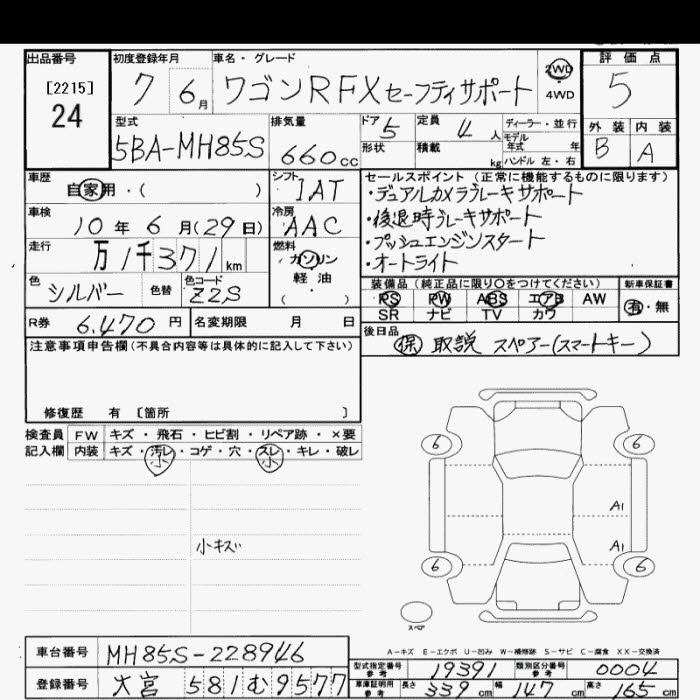 出品番号 初度登録年月 車名・グレード 評価点
[2215] 24 7 6月 ワゴンRFXセーフティサポート 2WD 4WD 5
型式 排気量 ドア 5 定員 4人 ディーラー・並行 外装 内装
5BA-MH85S 660cc 形状 積載 kg モデル年式 年 ハンドル 左・右 B A
車歴 自家用・( ) シフト IAT セールスポイント (正常に機能するものに限ります)
・デュアルカメラブレーキサポート
車検 10年6月(29日) 冷房 AAC ・後退時ブレーキサポート
走行 万1千371km 燃料 ガソリン ・プッシュエンジンスタート
軽油 ( ) ・オートライト
色 シルバー 色替 色コード Z2S 装備品 (純正品に限り○をつけてください) 新車保証書
PS PW ABS エアB AW 有・無
SR ナビ TV カワ
R券 6,470円 名変期限 月 日 後日品
保 取説 スペアー(スマートキー)
注意事項申告欄(不具合内容等は具体的に記入して下さい)
修復歴 有 〔箇所 〕
検査員 FW キズ・飛石・ヒビ割・リペア跡・×要
記入欄 内装 キズ・汚レ・コゲ・穴・スレ・キレ・破レ
小 小
6 6
A1
小キズ A1
6 6
スペア
A-キズ E-エクボ U-凹み W-補修跡 S-サビ C-腐食 XX-交換済
車台番号 MH85S-228946 型式指定番号 参考 19391 類別区分番号 参考 0004
登録番号 大宮 581む9577 車庫証明用 参考 長さ 339cm 幅 147cm 高さ 165cm